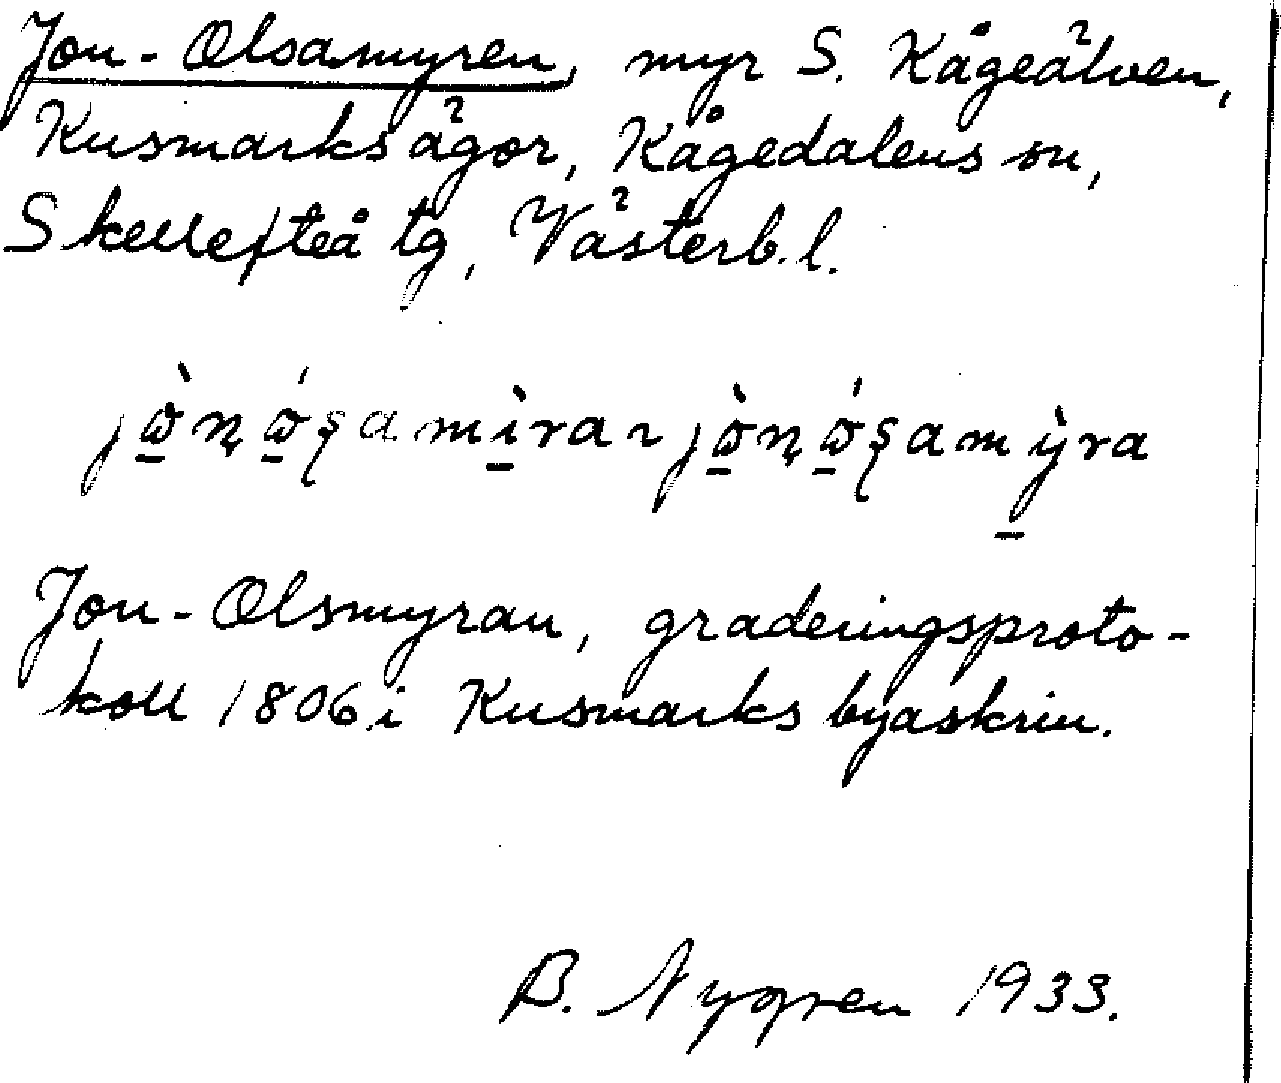 Jon-Olsamyren, myr S. Kågeälven,
Kusmarks ägor, Kågedalens sn,
Skellefteå tg, Västerb. l.
jὼ̱ņ ώ̱şa mì̱ra ~ jὼ̱ņ ώ̱şa mỳ̱ra
Jon-Olsmyran, graderingsproto-
koll 1806 i Kusmarks byaskrin.
B. Nygren 1933.